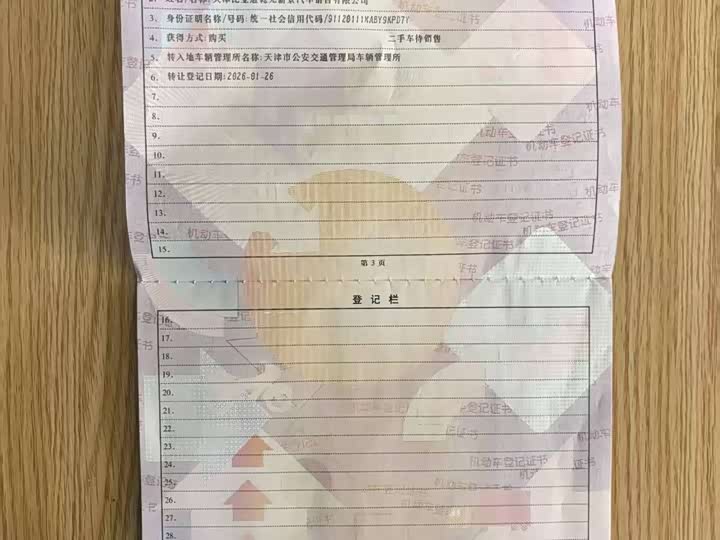 3. 身份证明名称/号码:统一社会信用代码/91120111XABY9KPD7Y
4. 获得方式:购买 二手车待销售
5. 转入地车辆管理所名称:天津市公安交通管理局车辆管理所
6. 转让登记日期:2026-01-26
7.
8.
9.
10.
11.
12.
13.
14.
15.
第 3 页
登 记 栏
16.
17.
18.
19.
20.
21.
22.
23.
24.
25.
26.
27.
28.
机动车登记证书
机动车登记证书
机动车登记证书
机动车登记证书